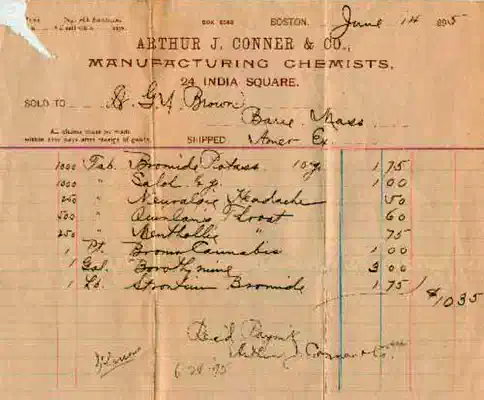 BOX 5260 BOSTON, June 14 1895
ARTHUR J. CONNER & CO.,
MANUFACTURING CHEMISTS,
24 INDIA SQUARE.
SOLD TO Dr. G. W. Brown
Barre Mass
All claims must be made
within five days after receipt of goods. SHIPPED Amer Ex.
1000 Tab. Bromide Potass 10 gr 1 75
1000 " Salol 1 00
250 " Neuralgic Headache 50
500 " Quinlans Throat 60
250 " Menthollic " 75
1 Pt. Bromo Cannabis 1 00
1 Gal. Borothymine 3 00
1 Lb. Strontium Bromide 1 75
$10 35
Rec'd Paym't
Arthur J. Conner & Co.
6-24-95